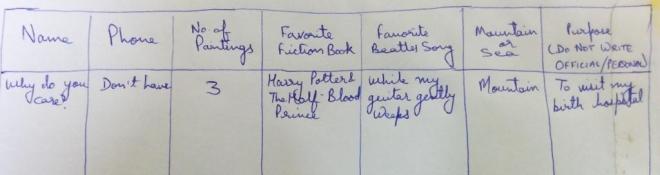 Name
Phone
No of
Paintings
Favorite
Fiction Book
Favorite
Beatles Song
Mountain
or
Sea
Purpose
(DO NOT WRITE
OFFICIAL/PERSONAL)
Why do you
care?
Don't have
3
Harry Potter &
The Half-Blood
Prince
While my
guitar gently
weeps
Mountain
To visit my
birth hospital